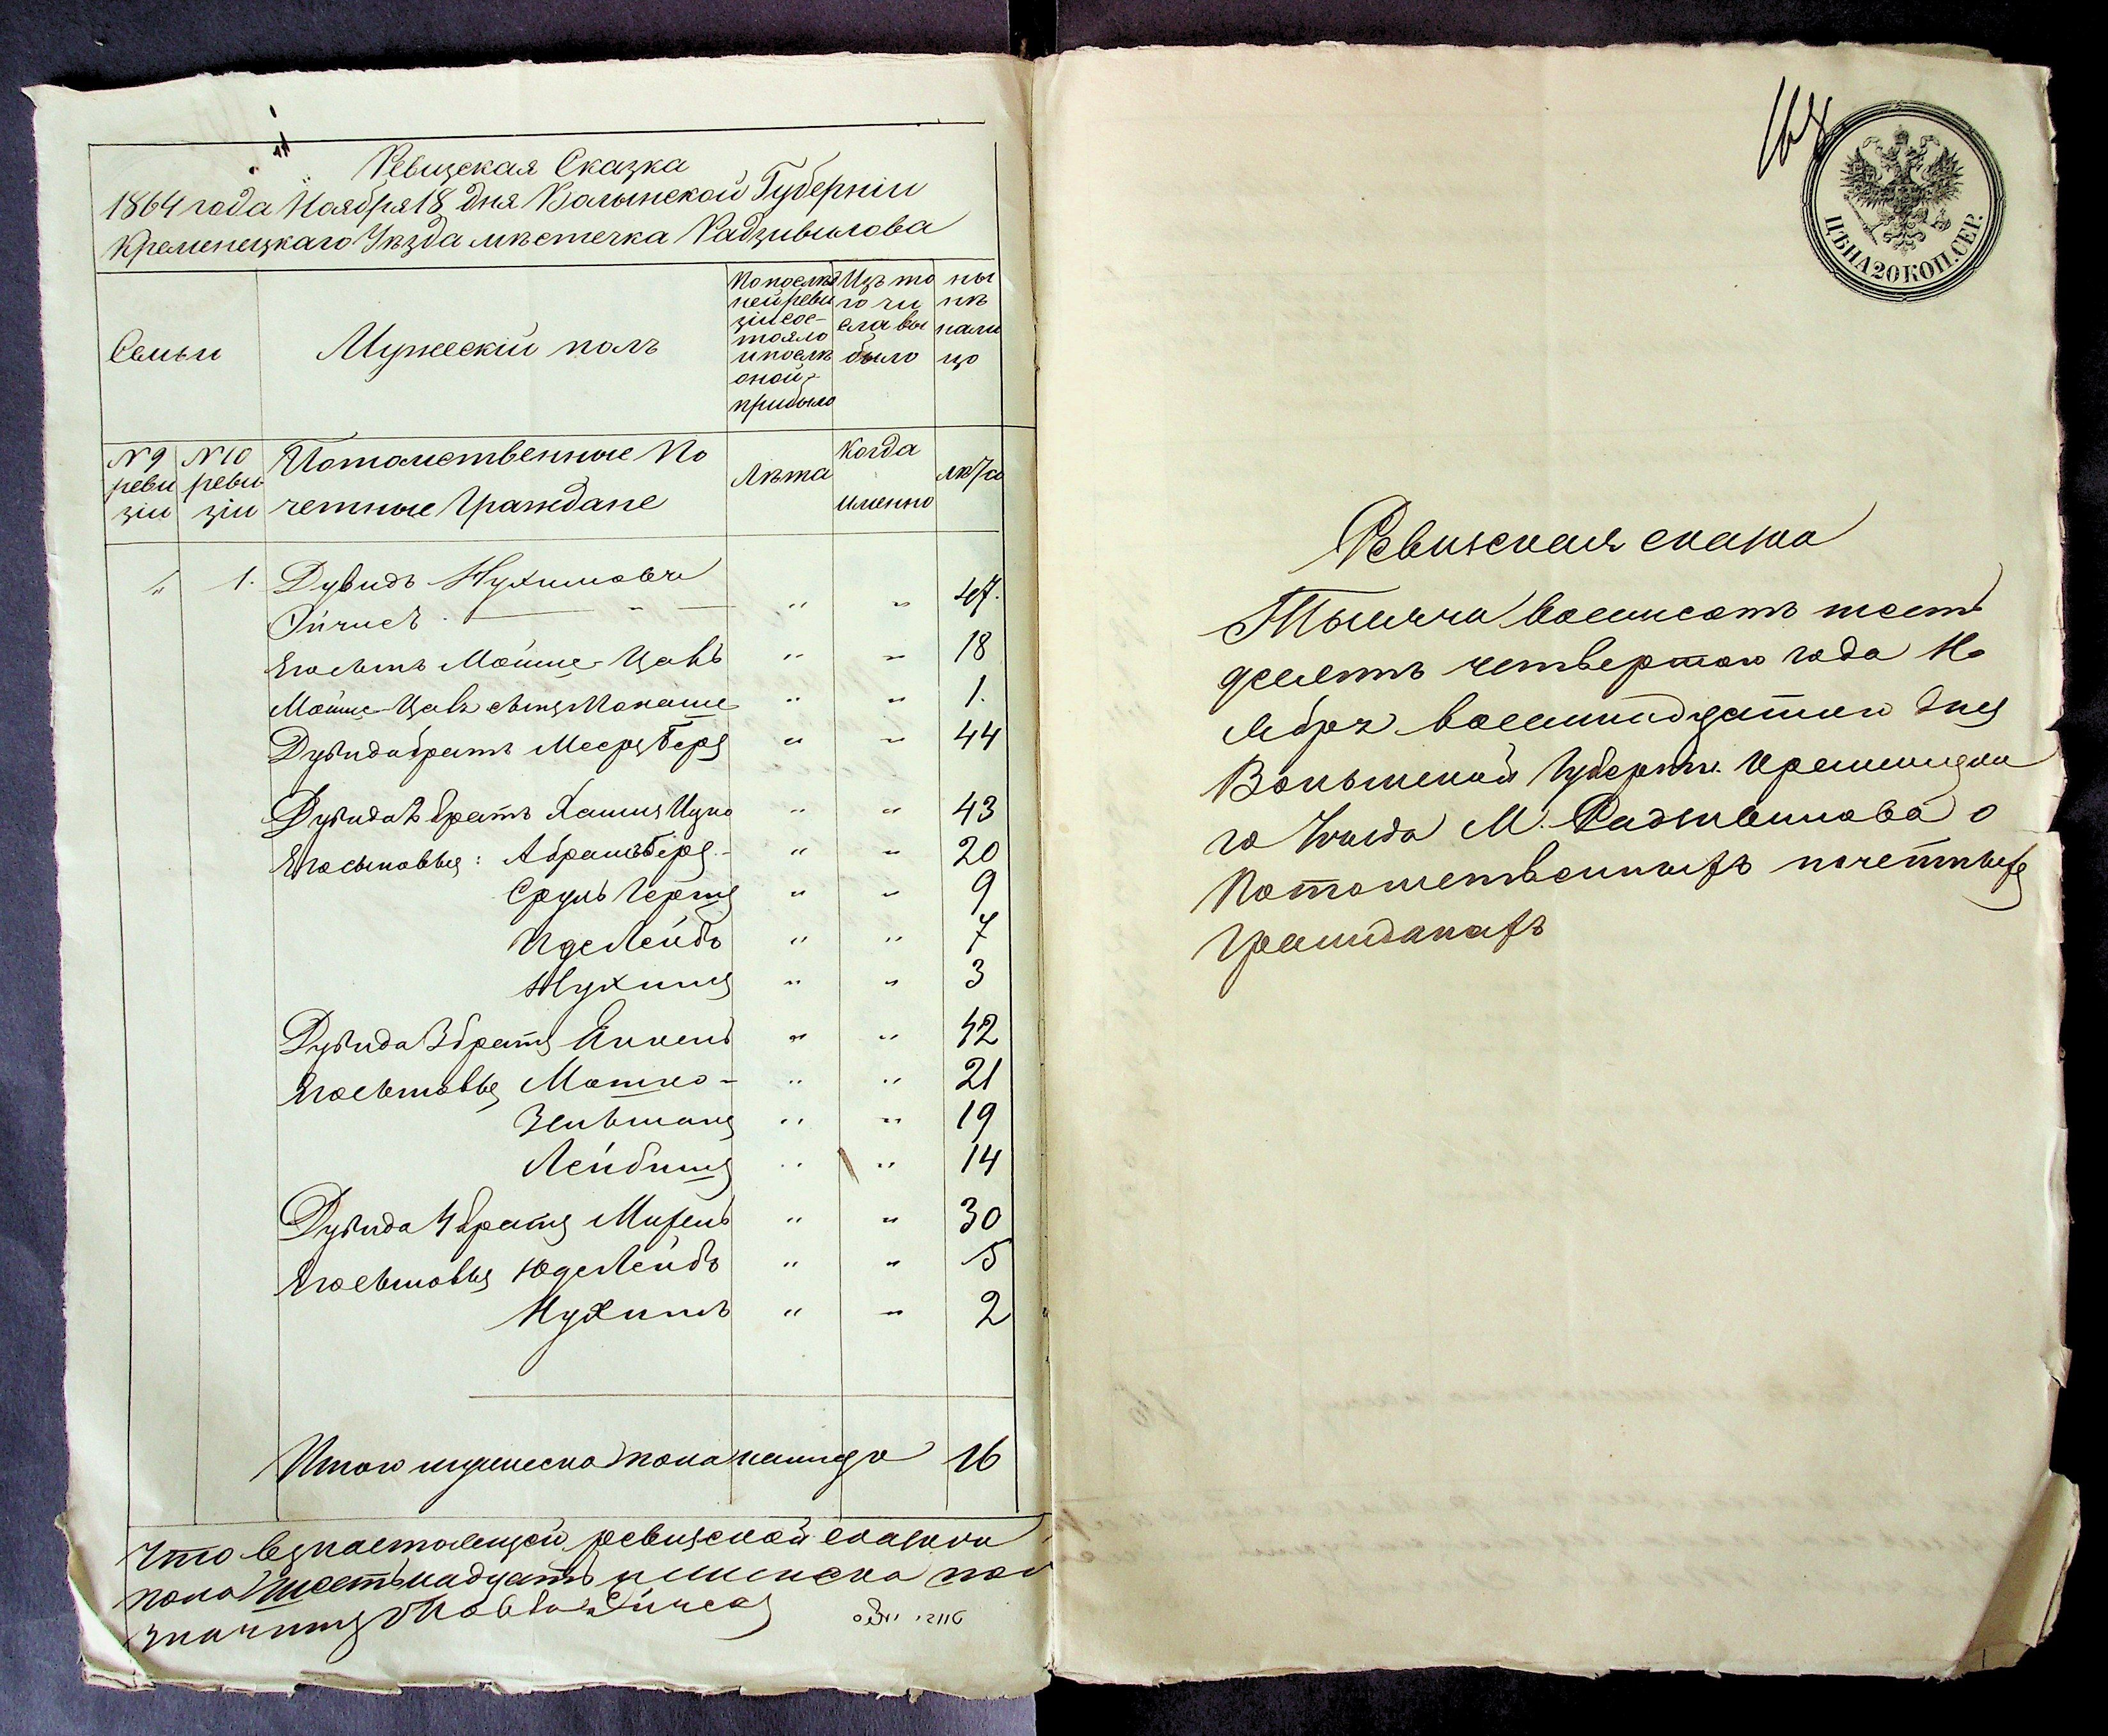 Ревизская Сказка
1864 года Ноября 18 дня Волынской Губерніи
Кременецкаго Уѣзда мѣстечка Радзивилова
Семьи
Мужескій полъ
По послѣд
ней реви
зіи сос-
тояло
и послѣ
оной
прибыло
Изъ то
го чи
сла вы
было
ны
нѣ
нали
цо
№ 9
реви
зіи
№ 10
реви
зіи
Потомственные По
четные Граждане
Лѣта
Когда
именно
Лѣта
" 1. Дувидъ Нухимовъ
Гинчесъ " " 47.
Его сынъ Мойше-Цалъ " " 18
Мойше-Цаля сынъ Монаше " " 1.
Дувида братъ Меер Беръ " " 44
Дувида 2 братъ Хаимъ Ицко " " 43
Его сыновья: Абрамъ Беръ " " 20
Сруль Герш " " 9
Иде Лейбъ " " 7
Нухимъ " " 3
Дувида 3 братъ Янкель " " 42
Его сыновья Мошко " " 21
Зельманъ " " 19
Лейбишъ " " 14
Дувида 4 братъ Михель " " 30
Его сыновья Юде Лейбъ " " 5
Нухимъ " " 2
Итого мужеска пола налицо 16
Что въ настоящей ревизской сказки
пола шестьнадцать и женска пол
значится
168
ЦѢНА 20 КОП. СЕР.
Ревизская сказка
Тысяча восемсотъ шесть
десятъ четвертого года Но
ября восемнадцатого дня
Волынской Губерніи Кременецка
го Уѣзда М. Радзивилова о
Потомственныхъ почетныхъ
гражданахъ